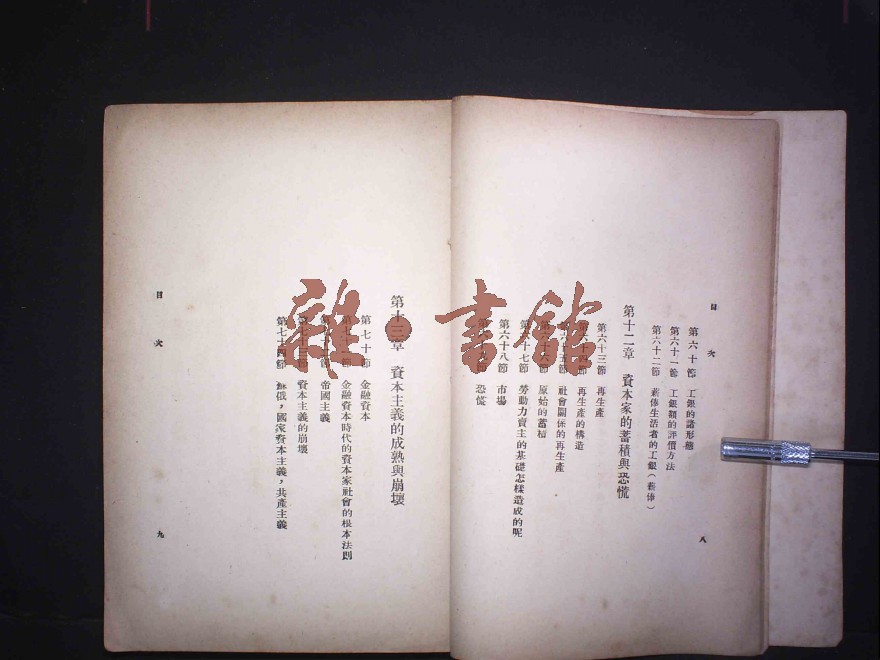 目次
第六十節 工銀的諸形態
第六十一節 工銀額的評價方法
第六十二節 薪俸生活者的工銀（薪俸）
第十二章 資本家的蓄積與恐慌
第六十三節 再生產
第六十四節 再生產的構造
第六十五節 社會關係的再生產
第六十六節 原始的蓄積
第六十七節 勞動力賣主的基礎怎樣造成的呢
第六十八節 市場
第六十九節 恐慌
八
目次
第十三章 資本主義的成熟與崩壞
第七十節 金融資本
第七十一節 金融資本時代的資本家社會的根本法則
第七十二節 帝國主義
第七十三節 資本主義的崩壞
第七十四節 蘇俄，國家資本主義，共產主義
九
雜·書館